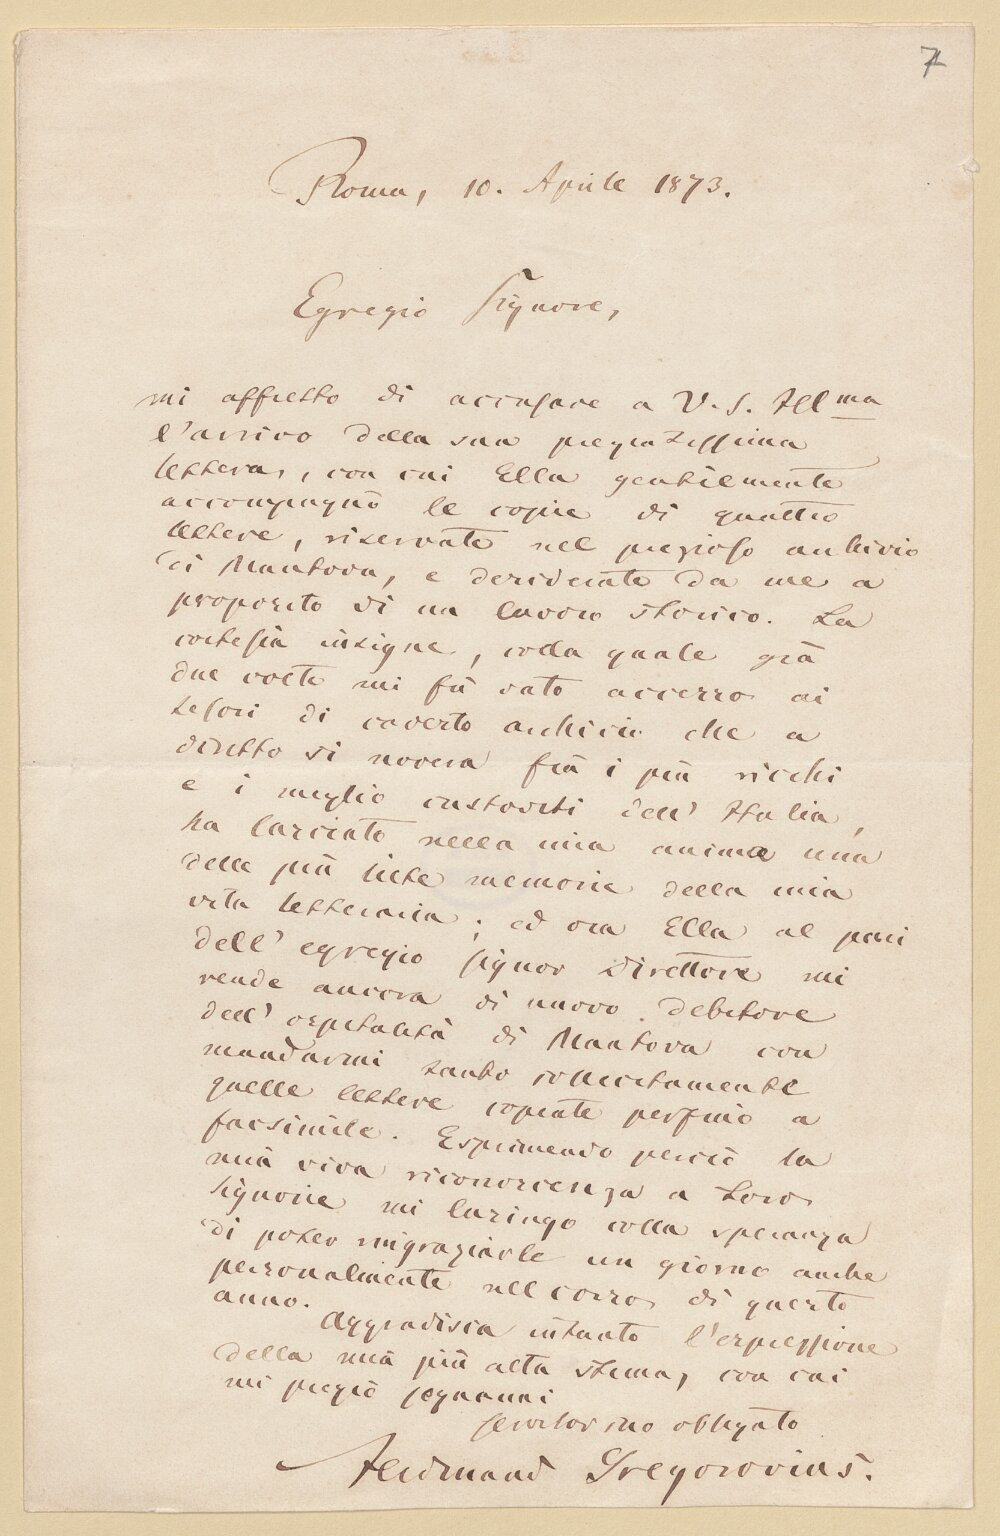 7
Roma, 10. Aprile 1873.
Egregio Signore,
mi affretto di accusare a V. S. Ill ma
l'arrivo della sua pregiatissima
lettera, con cui Ella gentilmente
accompagnò le copie di quattro
lettere, riservate nel prezioso archivio
di Mantova, e desiderate da me a
proposito di un lavoro storico. La
cortesia insigne, colla quale già
due volte mi fù dato accesso ai
tesori di codesto archivio che a
diritto si novera frà i più ricchi
e i meglio custoditi dell' Italia,
ha lasciato nella mia anima una
delle più liete memorie della mia
vita letteraria; ed ora Ella al pari
dell' egregio Signor Direttore mi
rende ancora di nuovo debitore
dell' ospitalità di Mantova con
mandarmi tanto sollecitamente
quelle lettere copiate perfino a
facsimile. Esprimendo perciò la
mia viva riconoscenza a Loro
Signorie mi lusingo colla speranza
di poter ringraziarle un giorno anche
personalmente nel corso di questo
anno. Aggradisca intanto l'espressione
della mia più alta stima, con cui
mi pregio segnarmi
servitor suo obbligato
Ferdinand Gregorovius.